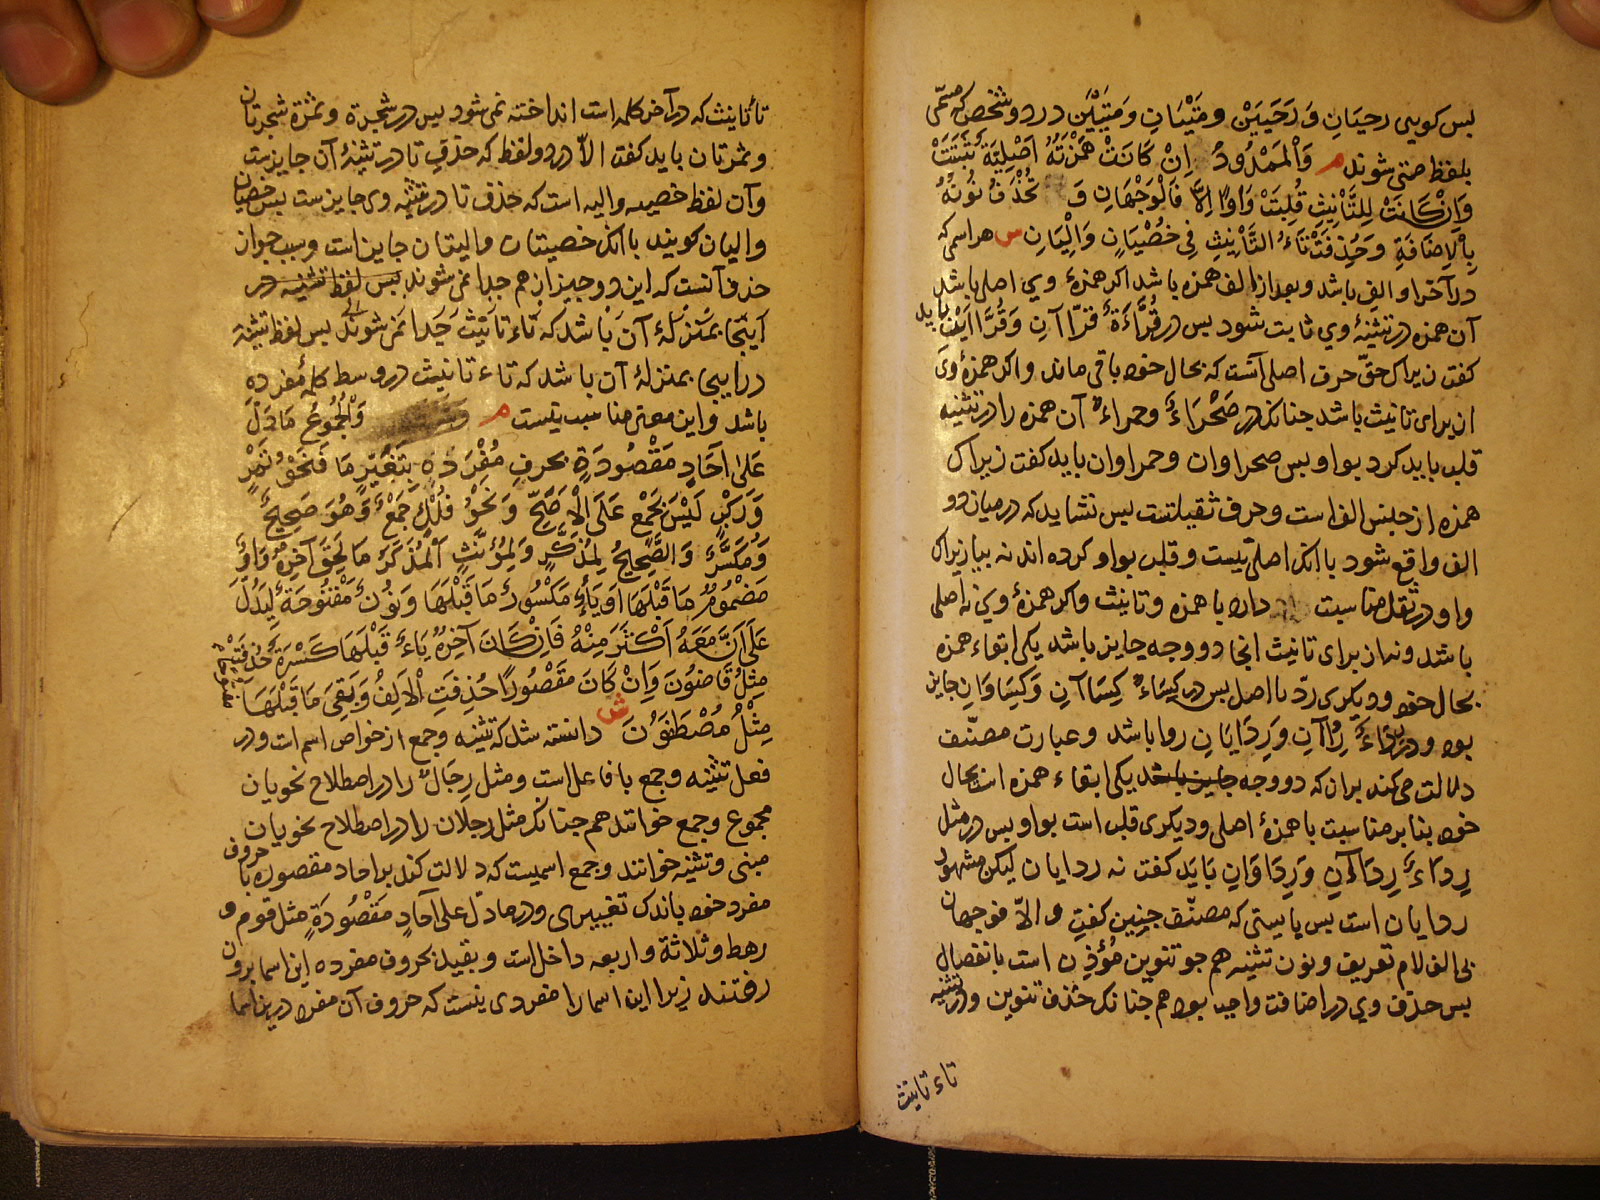 بس کویی رحیان وَ رَحَیَیْن ومَتَیْیانِ ومَتَیَیْن در دو شخص که مسمّی
بلفظ متی شوند م وَالْمَمْدُودُ اِنْ کَانَتْ هَمْزَتُهُ اَصْلِیَّةً ثَبَتَتْ
وَاِنْ کَانَتْ لِلتَّاْنِیثِ قُلِبَتْ وَاوًا اِلاَّ فَالْوَجْهَانِ وَ تُحْذَفُ نُونُهُ
بِالْاِضَافَةِ وَحُذِفَتْ تَاءُ التَّاْنِیثِ فِی خُصْیَانِ وَاَلْیَانِ س هر اسمی که
در آخر او الف باشد و بعد از الف همزه باشد اکر همزهٔ وي اصلی باشد
آن همزه در تثنیهٔ وي ثابت شود بس در قُرَّاءَةٌ قُرَّاآنِ وَقُرَّاایْنِ باید
کفت زیراک حقّ حرف اصلی آنست که بحال خود باقی ماند و اکر همزهٔ وَی
از برای تانیث باشد جنانک در صَحْرَاءَ وحمراءُ آن همزه را در تثنیه
قلب باید کرد بواو بس صحراوان وحمراوان باید کفت زیراک
همزه از جنس الف است و حرف ثقیلتست بس نشاید که در میان دو
الف واقع شود با انک اصلی نیست و قلب بواو کرده اند نه بیا زیراک
واو در ثقل مناسبت دارد با همزه و تانیث واکر همزهٔ وي نه اصلی
باشد ونه از برای تانیث انجا دو وجه جایز باشد یکی ابقاء همزه
بحال خود و دیکری ردّ با اصل بس در کِسَاءٌ کِسَاآنِ وَکِسَاوَانِ جایز
بود و در رِدَاءٌ رِدَاآنِ وَرِدَایَانِ روا باشد و عبارت مصنّف
دلالت می کند بران که دو وجه جایز باشد یکی ابقاء همزه است بحال
خود بنا بر مناسبت با همزهٔ اصلی و دیکری قلب است بواو بس در مثل
رِدَاءٌ رِدَاآنِ وَرِدَاوَانِ بَایَد کفت نه ردایان لیکن مشهود
ردایان است بس بایستی که مصنّف جنین کفتی و الاّ فوجهان
بی الف لام تعریف و نون تثنیه هم جو تنوین مُؤْذِن است بانفصال
بس حذف وي در اضافت واجب بود هم جنانک حذف تنوین و در تثنیه
تاء تانیث
تا تانیث که در آخر کلمه است انداخته نمی شود بس در شجرة وثمرة شجرتان
وثمرتان باید کفت الاّ در دو لفظ که حذف تا در تثنیهٔ آن جایزست
وآن لفظ خصیه والیه است که حذف تا در تثنیه وی جایزست بس خصیان
والیان کویند با انک خصیتان والیتان جایزاست وسبب جواز
حذف آنست که این دو جیز از هم جدا نمی شوند بس لفظ تثنیه در
آینجا بمَنْزلهٔ آن باشد که تاء تانیث جدا نمی شوند بس لفظ تثنیه
در اینجا بمنزلهٔ آن باشد که تاء تانیث در وسط کلمهٔ مفرده
باشد واین معنی مناسب نیست م وَالْمجُمُوعُ مَا دَلَّ
عَلَی اَحَادٍ مَقْصُودَةٍ بحروفِ مُفْرَدِهِ بِتَغْیِیرٍ مَا فَنَحْوُ تَمْرٍ
وَرَکْبٍ لَیْسَ بِجَمْعٍ عَلَی الْاَصَحِّ وَنَحْوُ فُلْكٍ جَمْعٌ وَهُوَ صَحِیحٌ
وَمُکَسَّرٌ وَالصَّحِیحُ لِمُذَکَّرٍ وَلِمُؤَنَّثٍ اَلْمُذَکَّرُ مَا لَحِقَ آخِرَهُ وَاوٌ
مَضْمُومٌ مَا قَبْلَهَا اَوْ یَاءٌ مَکْسُورٌ مَا قَبْلَهَا وَنُونٌ مَفْتُوحَةٌ لِیَدُلَّ
عَلَی اَنَّ مَعَهُ اَکْثَرَ مِنْهُ فَاِنْ کَانَ آخِرُهُ یَاءً قَبْلَهَا کَسْرَةٌ حُذِفَتْ
مِثْلُ قَاضُونَ وَاِنْ کَانَ مَقْصُورًا حُذِفَتِ الْاَلِفُ وَبَقِیَ مَا قَبْلَهَا مفتوحا
مِثْلُ مُصْطَفَوْنَ ش دانسته شد که تثنیه وجمع از خواص اسم است ودر
فعل تثنیه وجمع با فاعل است ومثل رِجَال را در اصطلاح نحویان
مجموع وجمع خوانند هم جنانک مثل رجلان را در اصطلاح نحویان
مبنی وتثنیه خوانند وجمع اسمیست که دلالت کند بر احاد مقصوده با حروف
مفرد خود باندک تغییری ودر مادلّ علی آحادٍ مَقْصُودَةٍ مثل قوم و
رهط وثلاثة واربعه داخل است وبقید بحروف مفرده این اسما برون
رفتند زیرا این اسما را مفردی نیست که حروف آن مفرد درین اسما